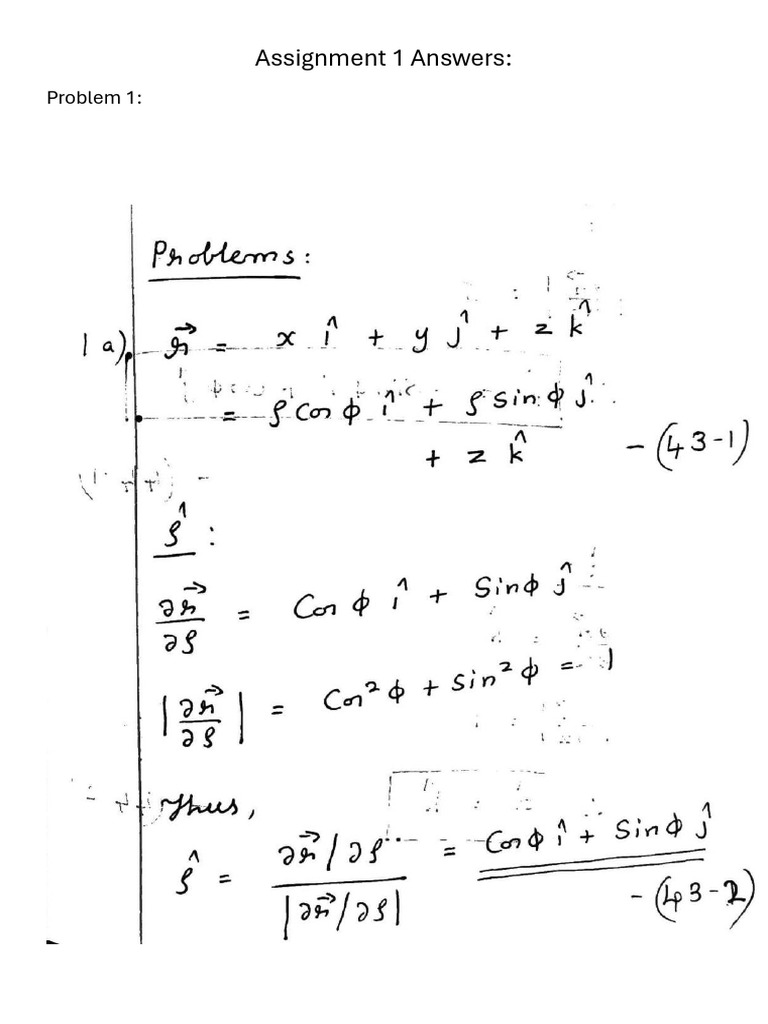 Assignment 1 Answers:
Problem 1:
Problems:
1 a) r⃗ = x î + y ĵ + z k̂
= ρ Cos ϕ î + ρ Sin ϕ ĵ
+ z k̂ - (43-1)
ρ̂ :
∂r⃗/∂ρ = Cos ϕ î + Sin ϕ ĵ
|∂r⃗/∂ρ| = Cos² ϕ + Sin² ϕ = 1
Thus,
ρ̂ = (∂r⃗/∂ρ)/|∂r⃗/∂ρ| = Cos ϕ î + Sin ϕ ĵ
- (43-2)